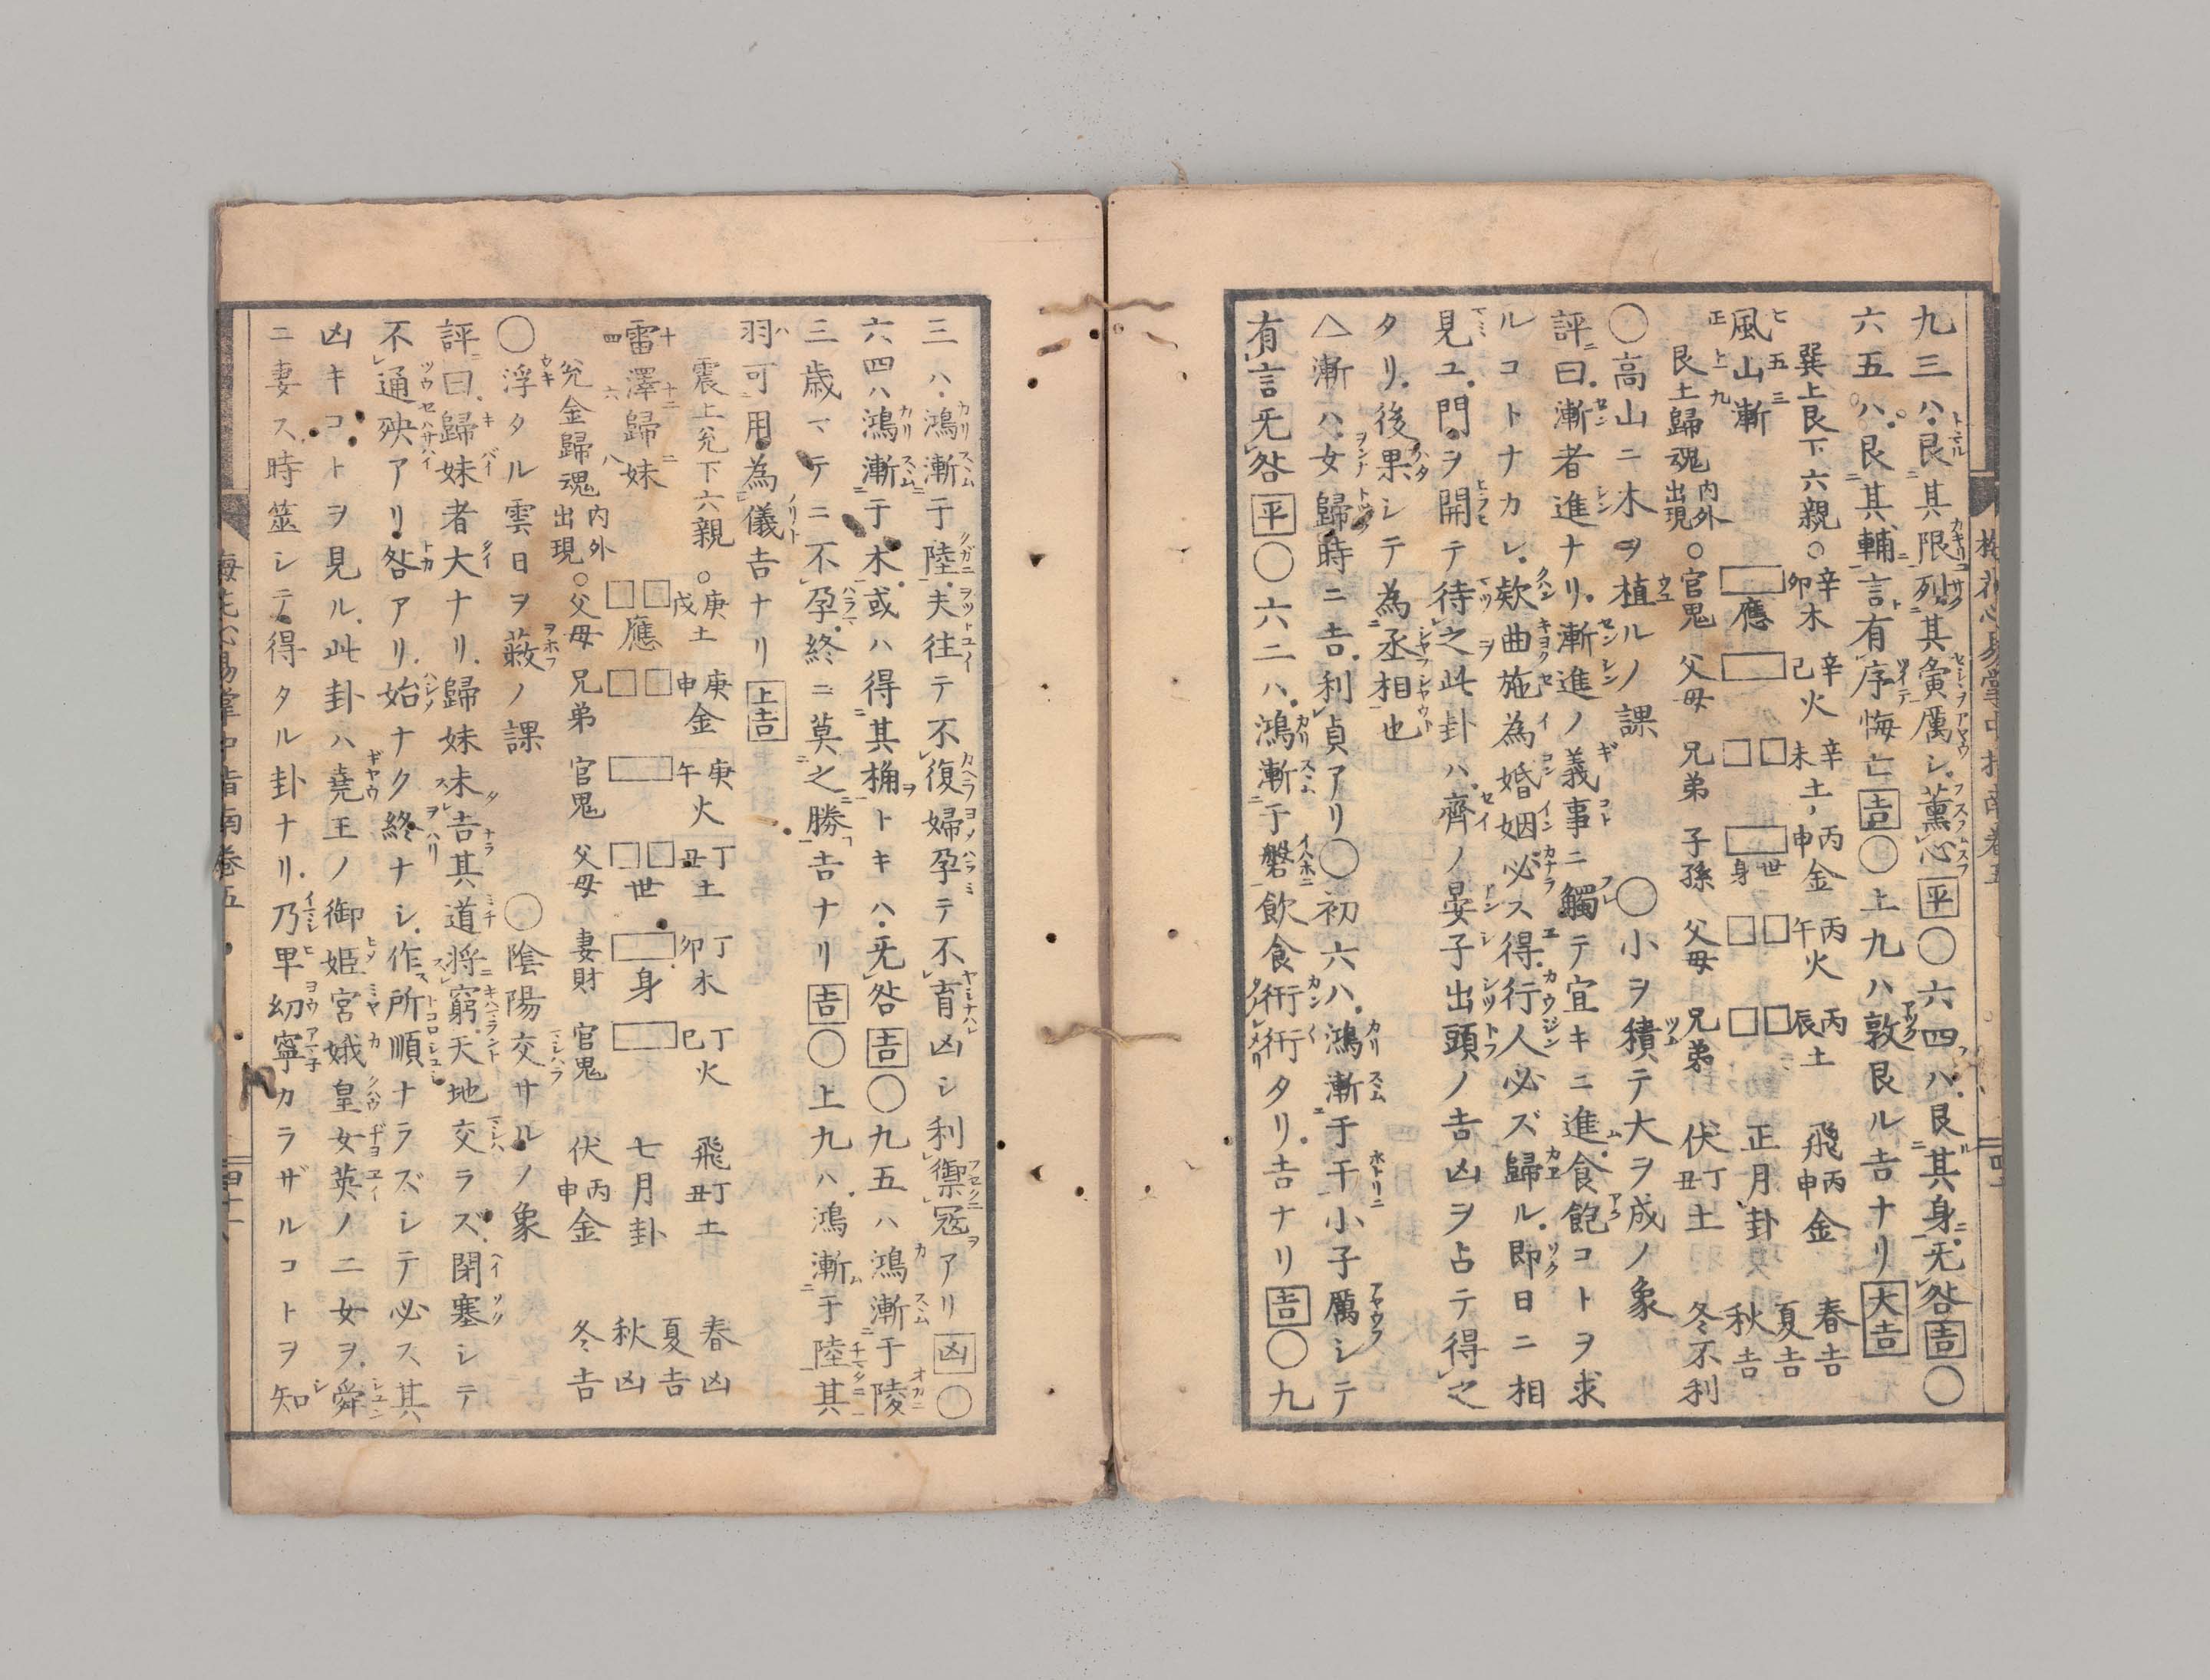 九三ハ艮其限列其夤厲シ薫心平〇六四ハ艮其身无咎吉〇
六五ハ艮其輔言有序悔亡吉〇上九ハ敦艮ル吉ナリ大吉
巽上艮下六親〇辛卯木 辛巳火 辛未土 丙申金 丙午火 丙辰土 飛丙申金 春吉
七五三
風山漸 應 世身 正月卦 夏吉
正上九 秋吉
艮土歸魂内外出現〇官鬼 父母 兄弟 子孫 父母 兄弟 伏丁丑土 冬不利
〇高山ニ木ヲ植ルノ課 〇小ヲ積テ大ヲ成ノ象
評曰漸者進ナリ漸進ノ義事ニ觸テ宜キニ進食飽コトヲ求
ルコトナカレ欵曲施為婚姻必ス得行人必ズ歸ル即日ニ相
見ユ門ヲ開テ待之此卦ハ齊ノ晏子出頭ノ吉凶ヲ占テ得之
タリ後果シテ為丞相也
△漸ハ女歸時ニ吉利貞アリ〇初六ハ鴻漸于干小子厲シテ
有言无咎平〇六二ハ鴻漸于磐飲食衎衎タリ吉ナリ吉〇九
三ハ鴻漸于陸夫往テ不復婦孕テ不育凶シ利禦寇アリ凶〇
六四ハ鴻漸于木或ハ得其桷トキハ无咎吉〇九五ハ鴻漸于陵
三歳マテニ不孕終ニ莫之勝吉ナリ吉〇上九ハ鴻漸于陸其
羽可用為儀吉ナリ上吉
震上兊下六親〇庚戌土 庚申金 庚午火 丁丑土 丁卯木 丁巳火 飛丁丑土 春凶
十十二二
雷澤歸妹 應 世 身 七月卦 夏吉
四六八 秋凶
兊金歸魂内外出現〇父母 兄弟 官鬼 父母 妻財 官鬼 伏丙申金 冬吉
〇浮タル雲日ヲ蔽ノ課 〇陰陽交サルノ象
評曰歸妹者大ナリ歸妹未吉其道将窮天地交ラズ閉塞シテ
不通殃アリ咎アリ始ナク終ナシ作所順ナラズシテ必ス其
凶キコトヲ見ル此卦ハ堯王ノ御姫宮娥皇女英ノ二女ヲ舜
ニ妻ス時筮シテ得タル卦ナリ乃卑幼寧カラザルコトヲ知